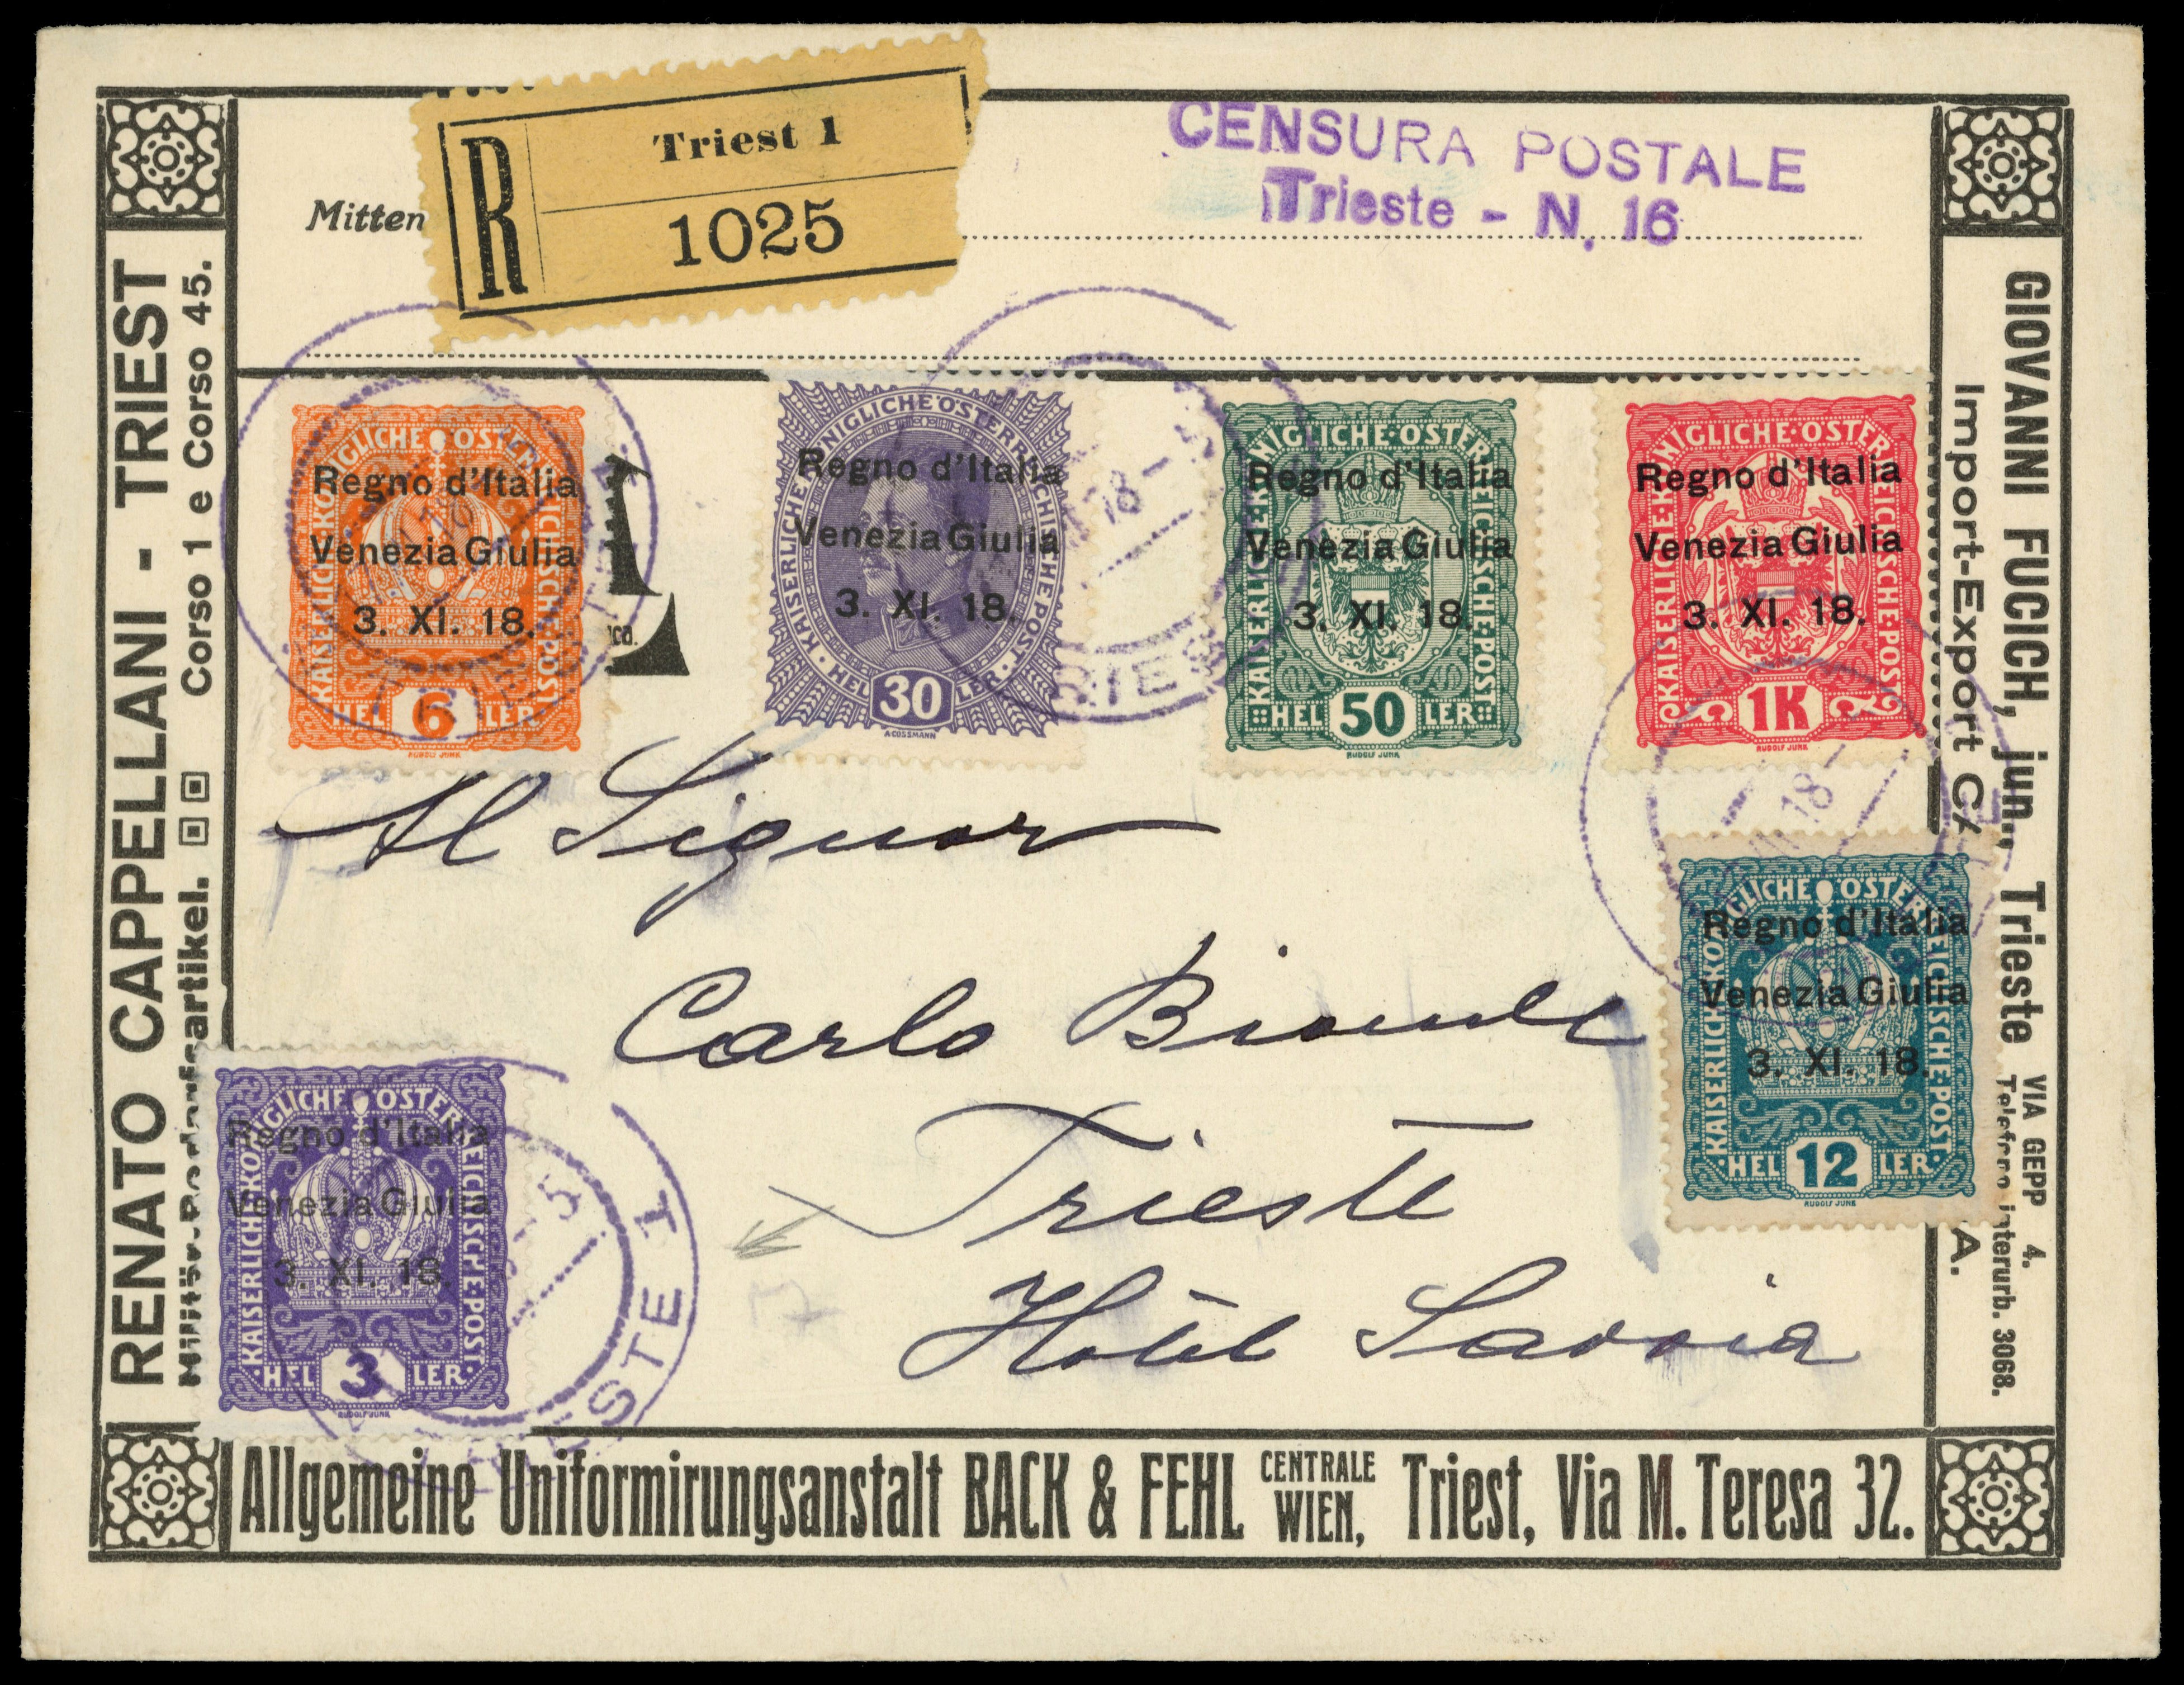 Triest 1
R
1025
CENSURA POSTALE
Trieste - N. 16
Mitten
RENATO CAPPELLANI - TRIEST
Corso 1 e Corso 45.
GIOVANNI FUCICH, jun., Trieste VIA GEPP 4.
Import-Export
A.
interurb. 3068.
KAISERLICHE KÖNIGLICHE ÖSTERREICHISCHE POST
Regno d'Italia
Venezia Giulia
3. XI. 18.
HEL 6 LER
RUDOLF JUNK
KAISERLICHE KÖNIGLICHE ÖSTERREICHISCHE POST
Regno d'Italia
Venezia Giulia
3. XI. 18.
HEL 30 LER
A COSSMANN
KAISERLICHE KÖNIGLICHE ÖSTERREICHISCHE POST
Regno d'Italia
Venezia Giulia
3. XI. 18.
HEL 50 LER
RUDOLF JUNK
KAISERLICHE KÖNIGLICHE ÖSTERREICHISCHE POST
Regno d'Italia
Venezia Giulia
3. XI. 18.
1K
RUDOLF JUNK
Al Signor
Carlo
Trieste
Hôtel Savoia
KAISERLICHE KÖNIGLICHE ÖSTERREICHISCHE POST
Regno d'Italia
Venezia Giulia
3. XI. 18.
HEL 12 LER
RUDOLF JUNK
KAISERLICHE KÖNIGLICHE ÖSTERREICHISCHE POST
Regno d'Italia
Venezia Giulia
3. XI. 18.
HEL 3 LER
RUDOLF JUNK
TRIESTE 1
Allgemeine Uniformirungsanstalt BACK & FEHL CENTRALE WIEN, Triest, Via M. Teresa 32.